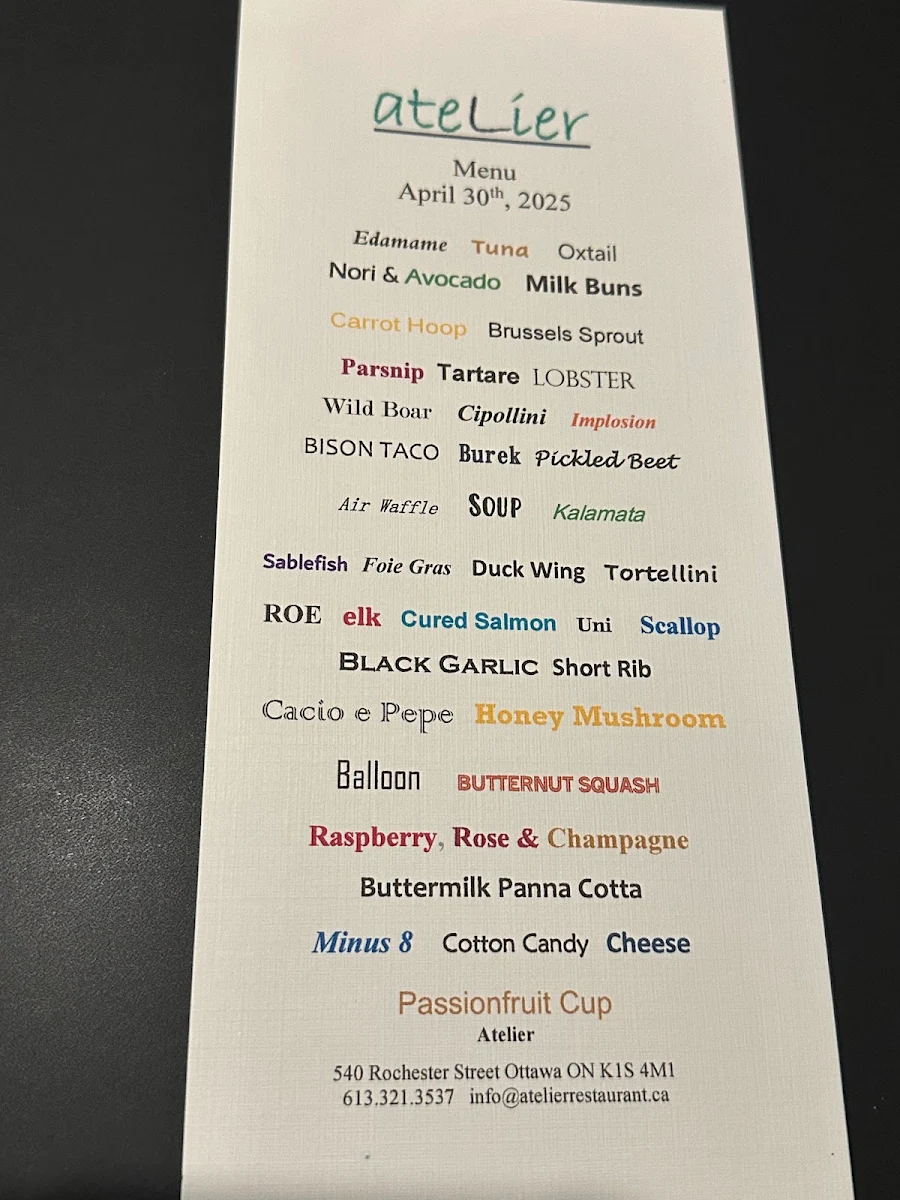 ateLier
Menu
April 30th, 2025
Edamame Tuna Oxtail
Nori & Avocado Milk Buns
Carrot Hoop Brussels Sprout
Parsnip Tartare LOBSTER
Wild Boar Cipollini Implosion
BISON TACO Burek Pickled Beet
Air Waffle SOUP Kalamata
Sablefish Foie Gras Duck Wing Tortellini
ROE elk Cured Salmon Uni Scallop
BLACK GARLIC Short Rib
Cacio e Pepe Honey Mushroom
Balloon BUTTERNUT SQUASH
Raspberry, Rose & Champagne
Buttermilk Panna Cotta
Minus 8 Cotton Candy Cheese
Passionfruit Cup
Atelier
540 Rochester Street Ottawa ON K1S 4M1
613.321.3537 info@atelierrestaurant.ca